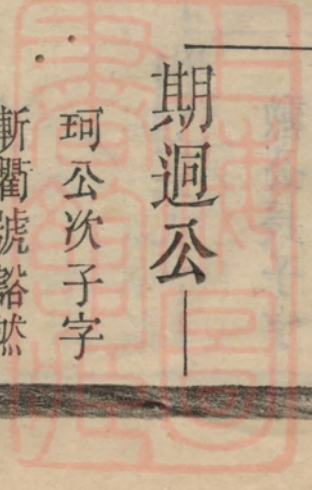 期迥公
珂公次子字
斬衢號谿然